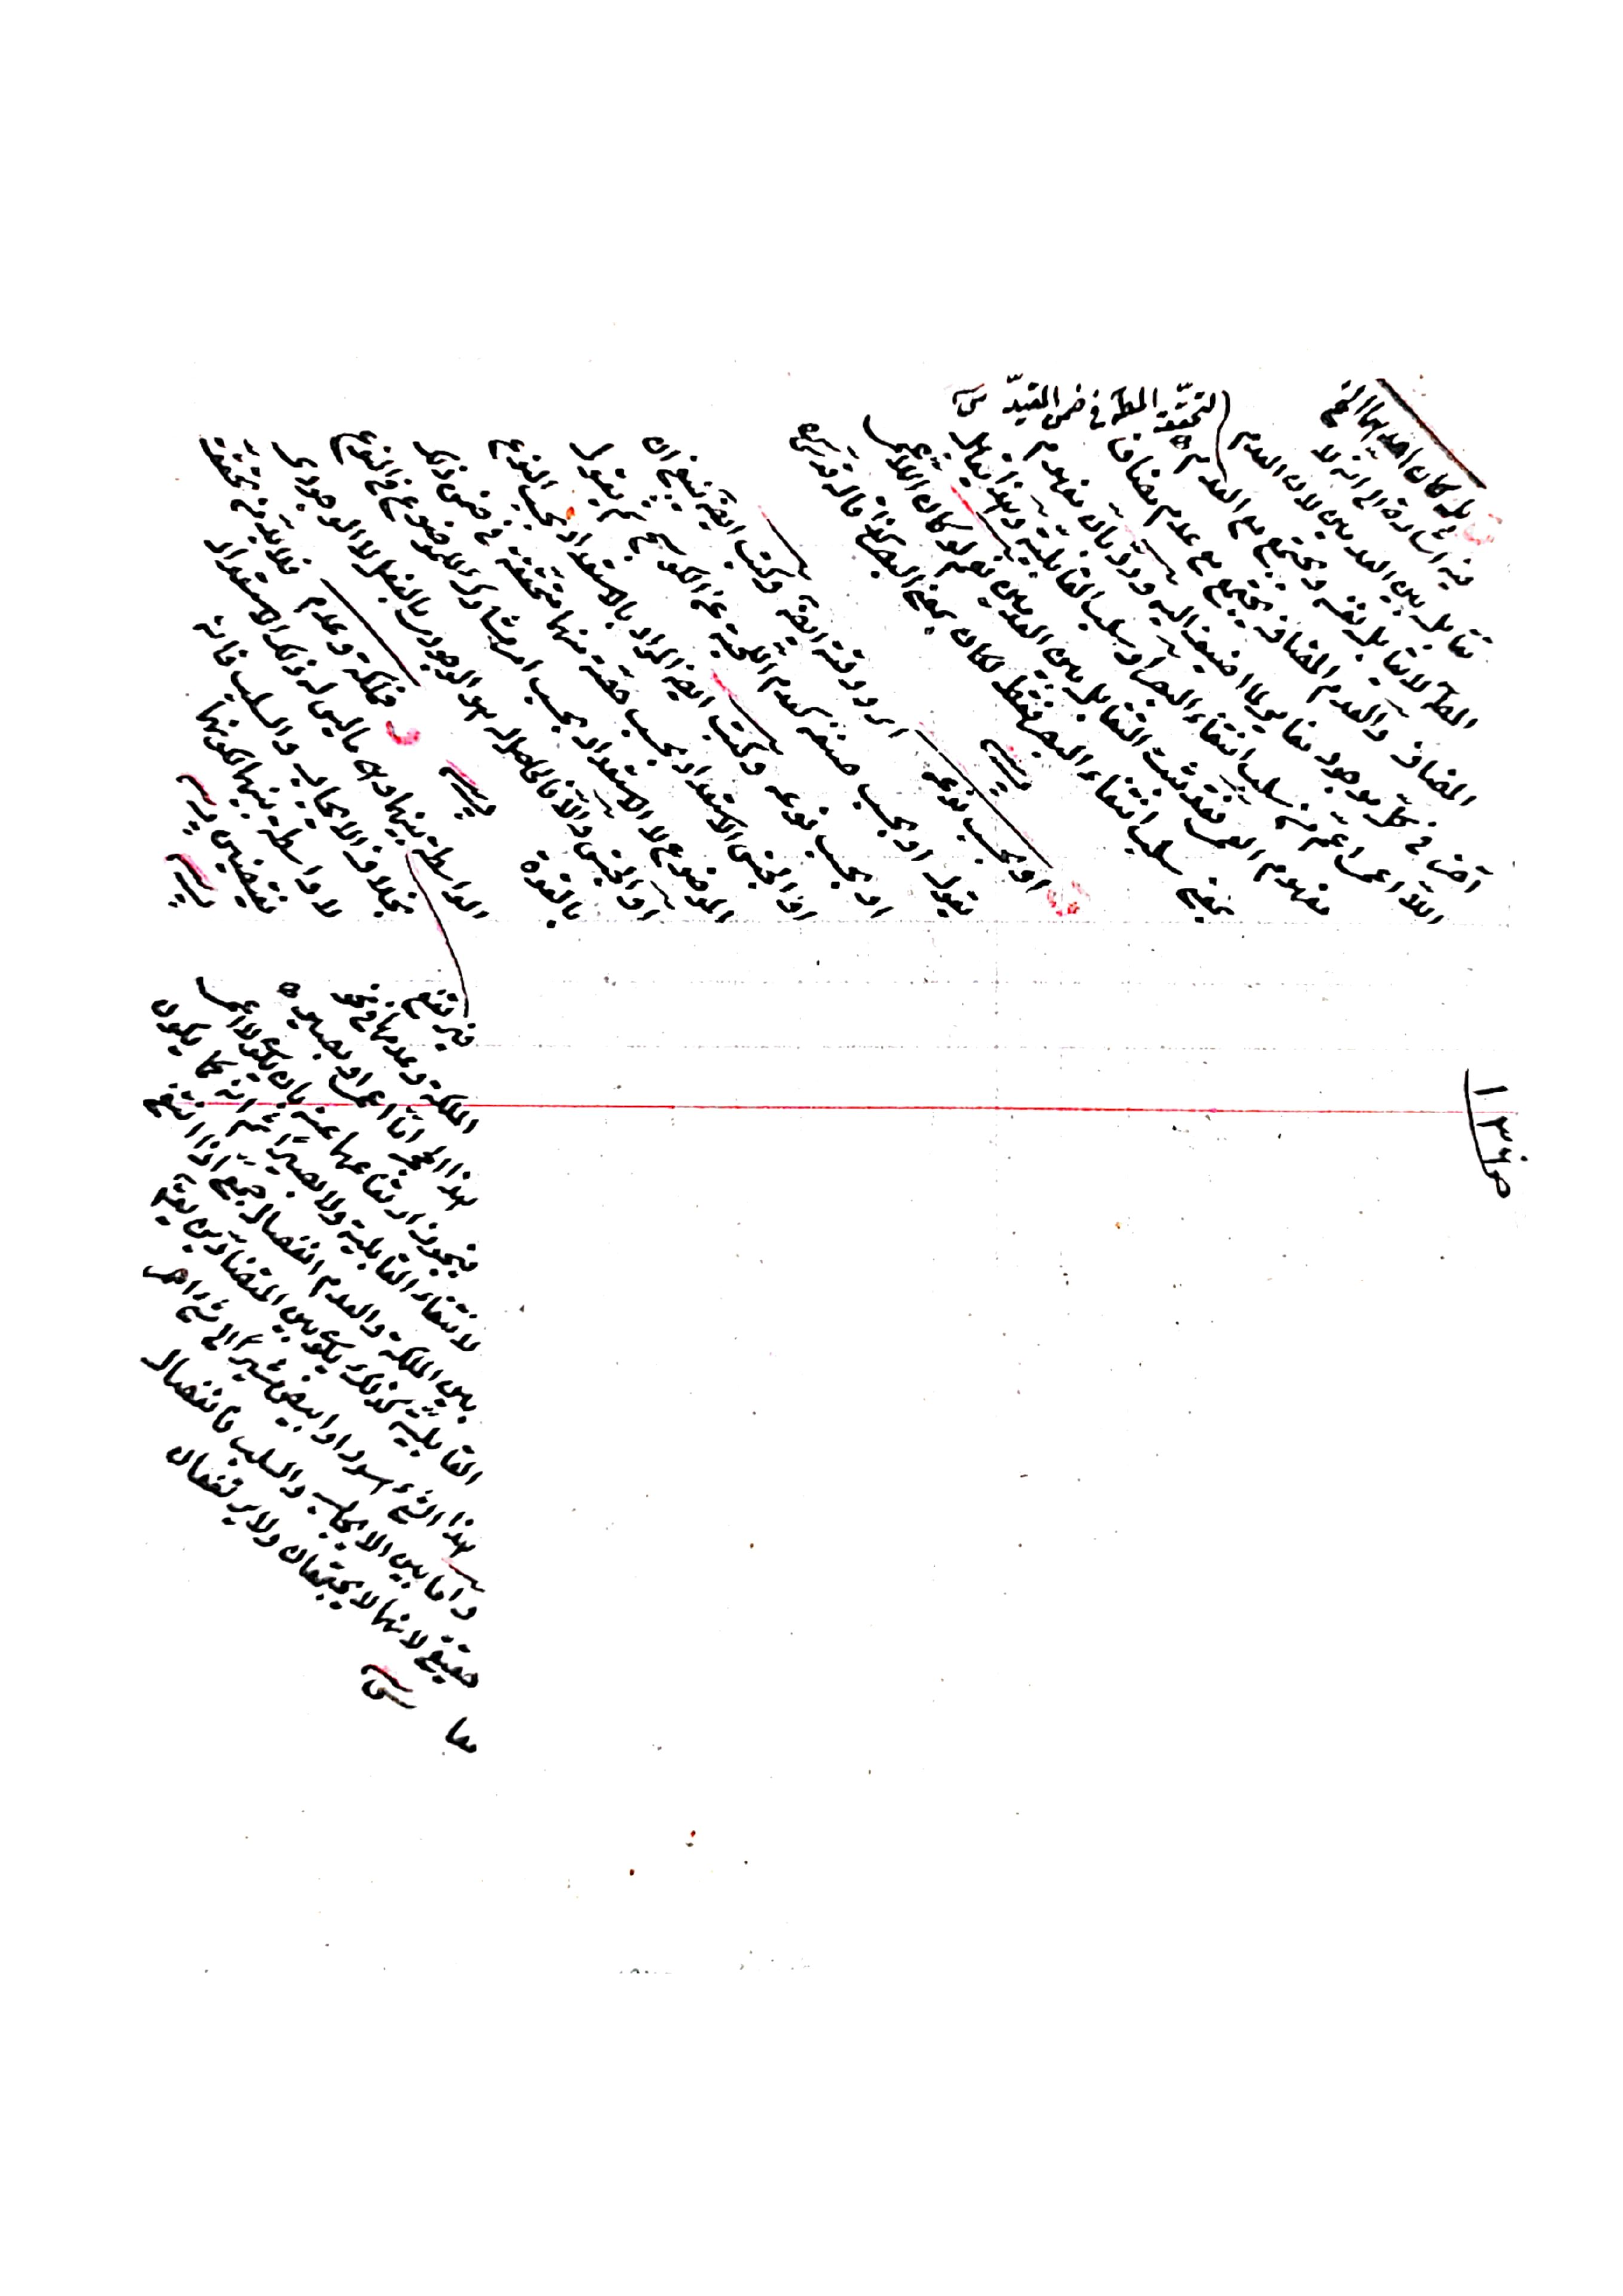 بل كان احديهما الخ
فيه اشارة الى انه لا
تقابل بين العدمين لان العدم
المط لا يقابل نفسه ويجتمع مع العدم
لتحقّق المط في ضمن المقيّد
المضاف والعدم المضاف يجتمع مع عدم مضاف
آخر في كل موجود مغاير لما اضيف اليه وردّ بان مفهوم
اللا اعمى اعمّ من سلب انتفاء البصر او سلب القابلية وهذا يقابل
مفهوم العمى فقد ثبت التقابل بين العدمين نعم لو كان اللا اعمى
بمعنى سلب انتفاء البصر فقط لكان بمعنى البصر كذا قال قدس سره
او بحسب نوعه اى وقته ايضا وكتب ايضا ينبغي ان
يقول او بحسب صنفه كعدم اللحية عن الكوسج يقول
او بحسب نوعه وكتب ايضا المراد بالاستعداد بحسب النوع
او الجنس الاستعداد بحسب حصة منهما متحققة في ضمن ذلك
الموضوع لا الاستعداد بحسب امر مشارك للموضوع في النوع
او الجنس والّا فالحاصل هو الوجود بالفعل لا الوجودى
بالقوة
فملكة وعدم فلا بدّ من تحقق
الواسطة بينهما وهى ما ليس له ذلك الاستعداد
بخلاف الايجاب والسلب فانه
لا واسطة بينهما لكونهما
نقيضين
فيرتفع
الملكة وعدمها في نحو
هذا الحجر امّا اعمى او بصير
فيجوز ارتفاعهما عنه بان يكون لا اعمى
لانتفاء القابلية ولا بصيرا ثم انه كما يكون
بين الملكة والعدم انفصال جمع اذا انتفى
القابلية كذلك يكون بين المتضادين
هذا الشئ اسود او ابيض مشيرا الى شئ احمر
وامّا بين الايجاب والسلب فانفصال
حقيقى لانهما لا يجتمعان ولا يرتفعان